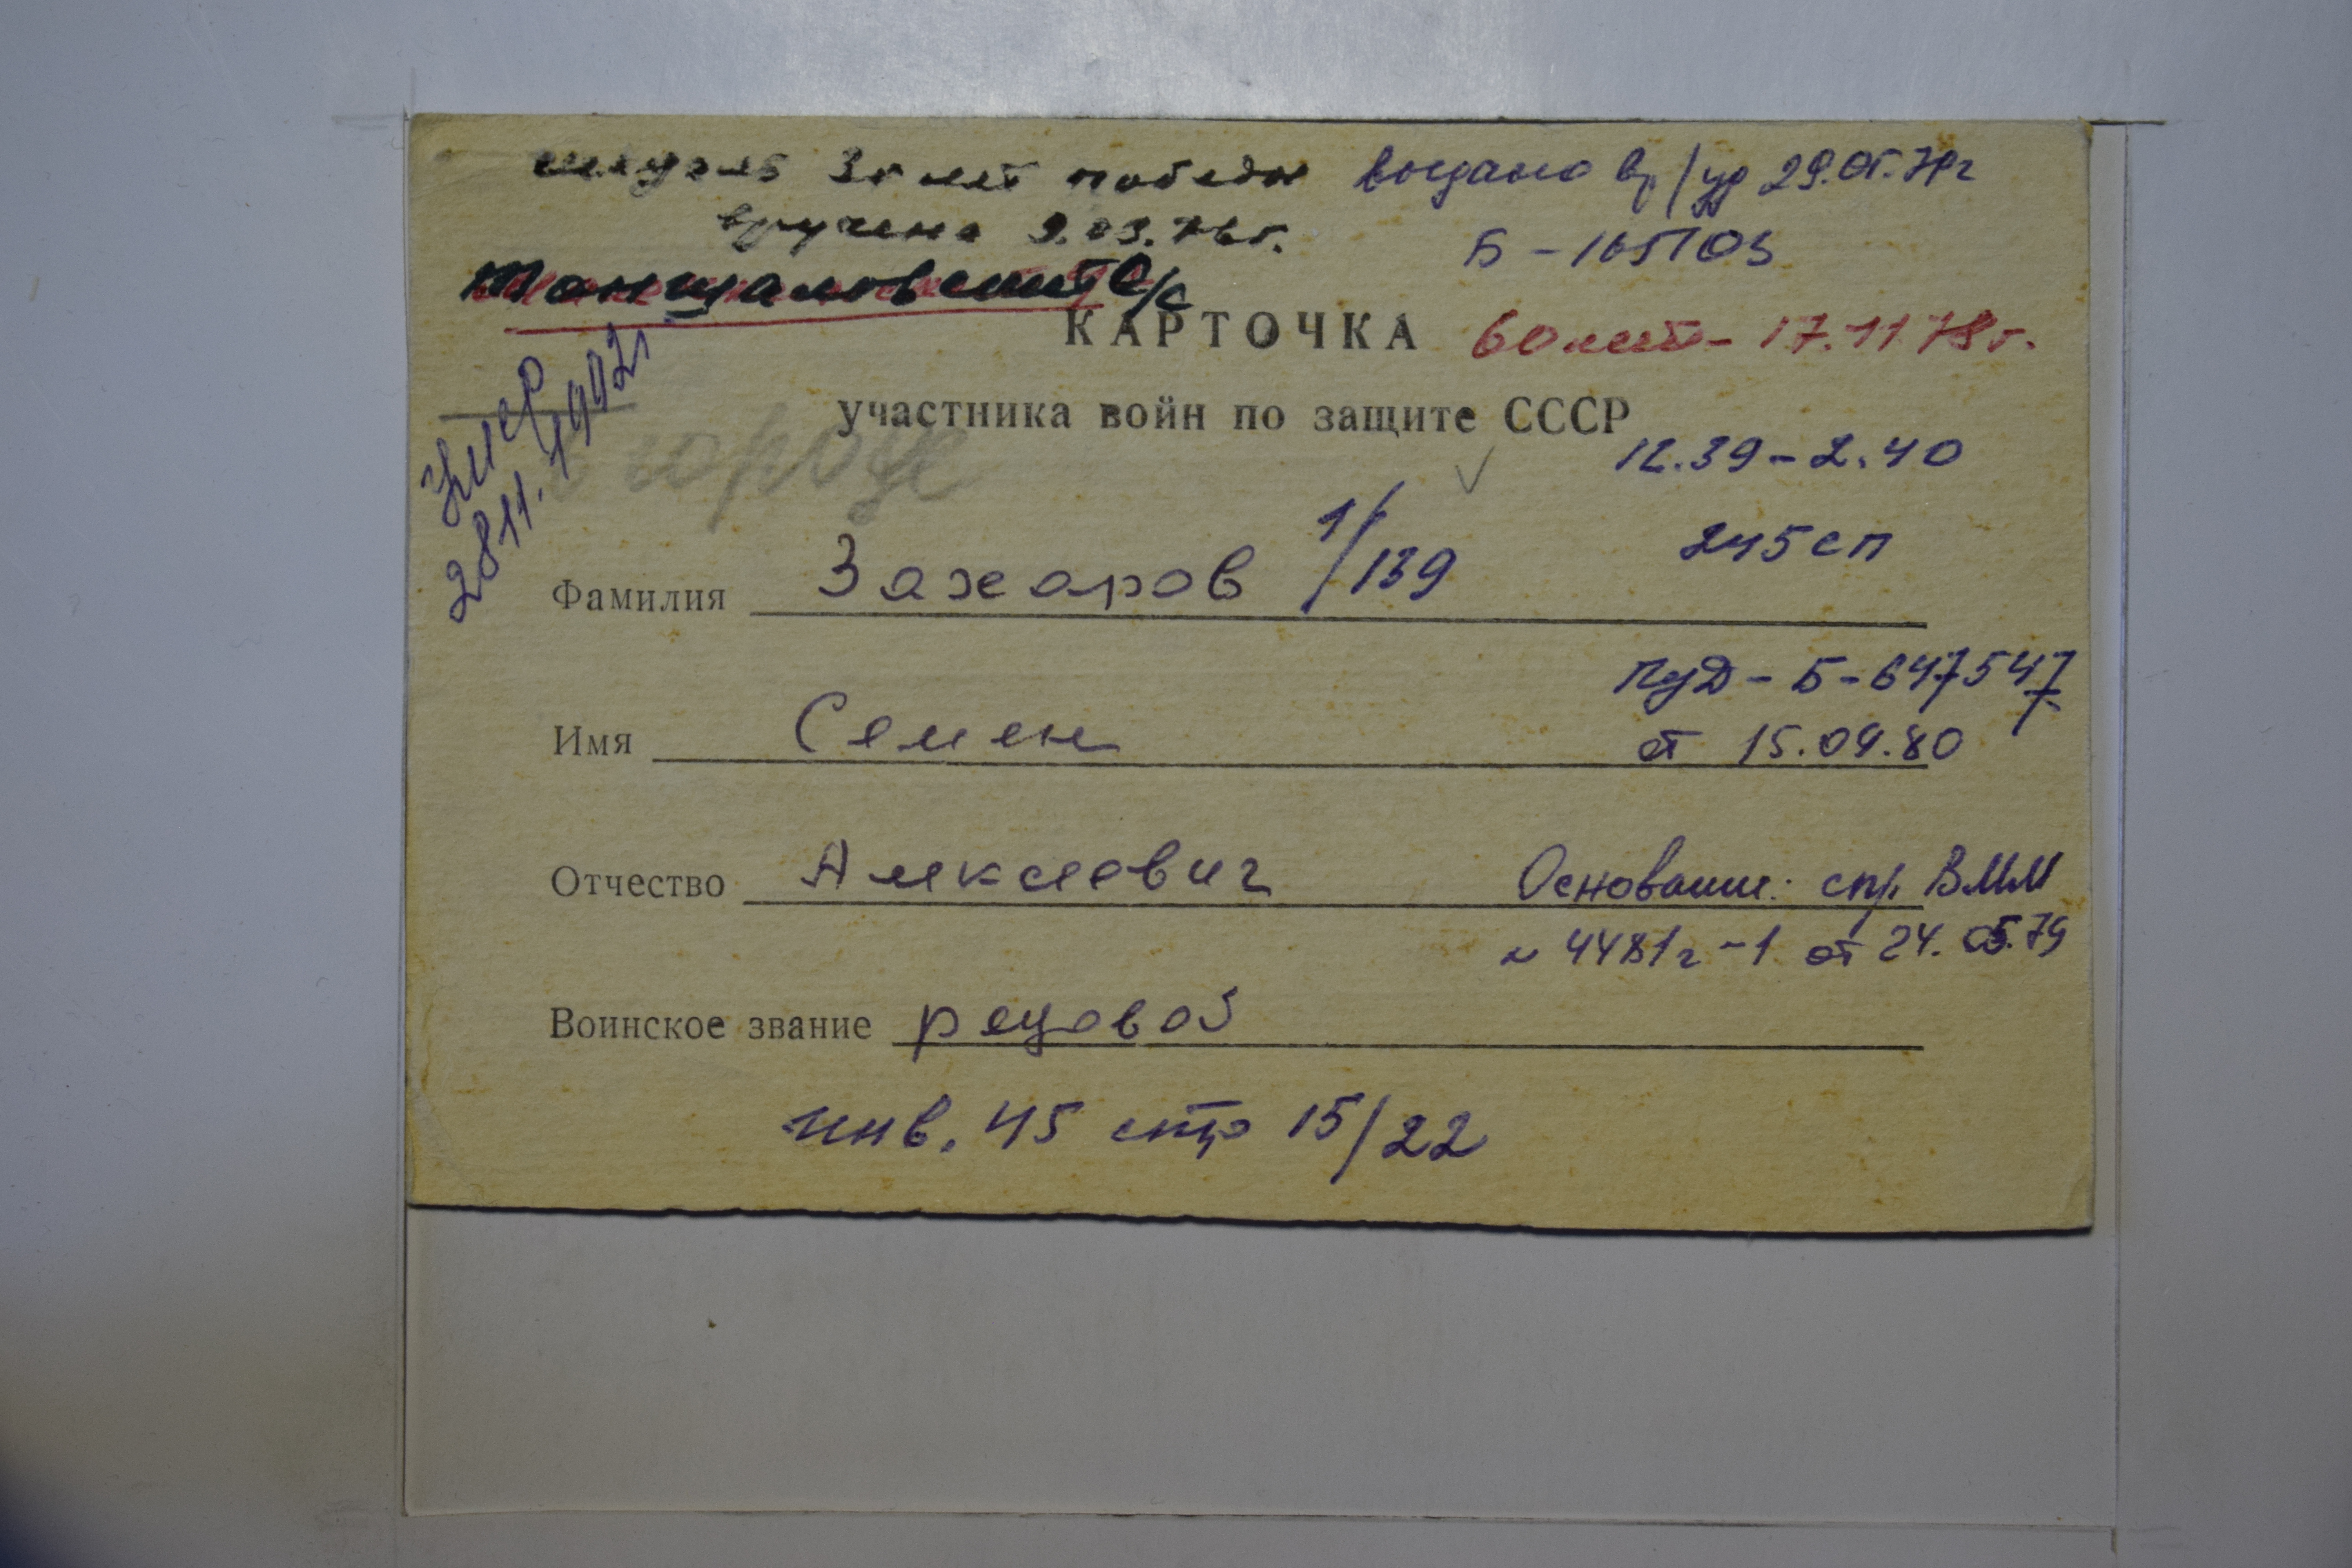 медаль 30 лет победы
вручена 9.03.76г.
выдано вр/уд 29.05.79г
Б - 165703
Таншаловский с/с
КАРТОЧКА
60 лет - 17.11.78г.
участника войн по защите СССР
Умер
28.11.1992г.
в городе
12.39 - 2.40
245 сп
Фамилия Захаров 1/139
ПуД - Б - 647547
от 15.09.80
Имя Семен
Отчество Алексеевич
Основание: спр ВММ
№ 4481г-1 от 24.05.79
Воинское звание рядовой
инв. 45 стр 15/22